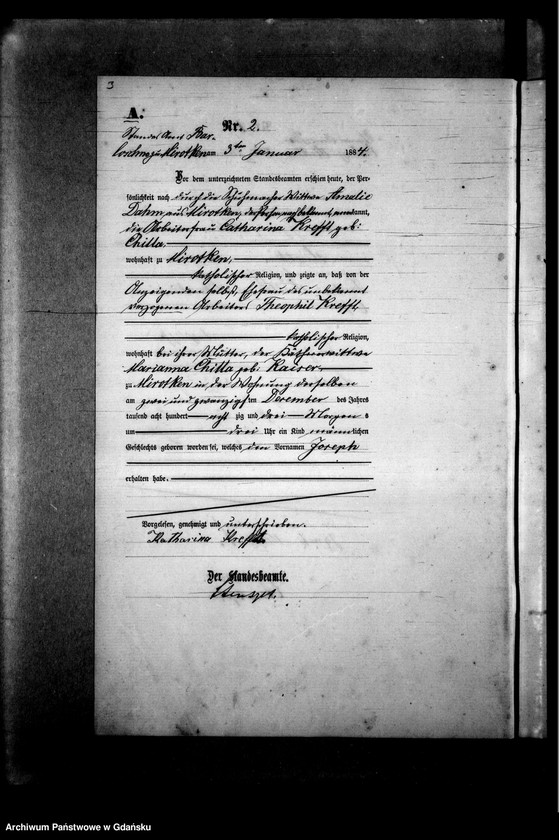 3
A.
Nr. 2.
Standes Amt Bar-
loschno zu Mirotken am 3ten Januar 1884.
Vor dem unterzeichneten Standesbeamten erschien heute, der Per-
sönlichkeit nach durch die Schuhmacher Wittwe Amalie
Dahm, aus Mirotken, der Person nach bekannt, anerkannt,
die Arbeiterfrau Catharina Krefft geb:
Chilla.
wohnhaft zu Mirotken,
katholischer Religion, und zeigte an, daß von der
Anzeigenden selbst, Ehefrau des unbekannt
verzogenen Arbeiters Theophil Krefft,
katholischer Religion,
wohnhaft bei ihrer Mutter, der Käthnerwittwe
Marianna Chilla geb: Kaiser,
zu Mirotken in der Wohnung derselben
am zwei und zwanzigsten Dezember des Jahres
tausend acht hundert acht zig und drei Morgens
um drei Uhr ein Kind männlichen
Geschlechts geboren worden sei, welches den Vornamen Joseph
erhalten habe.
Vorgelesen, genehmigt und unterschrieben.
Katharina Krefft
Der Standesbeamte.
Archiwum Państwowe w Gdańsku